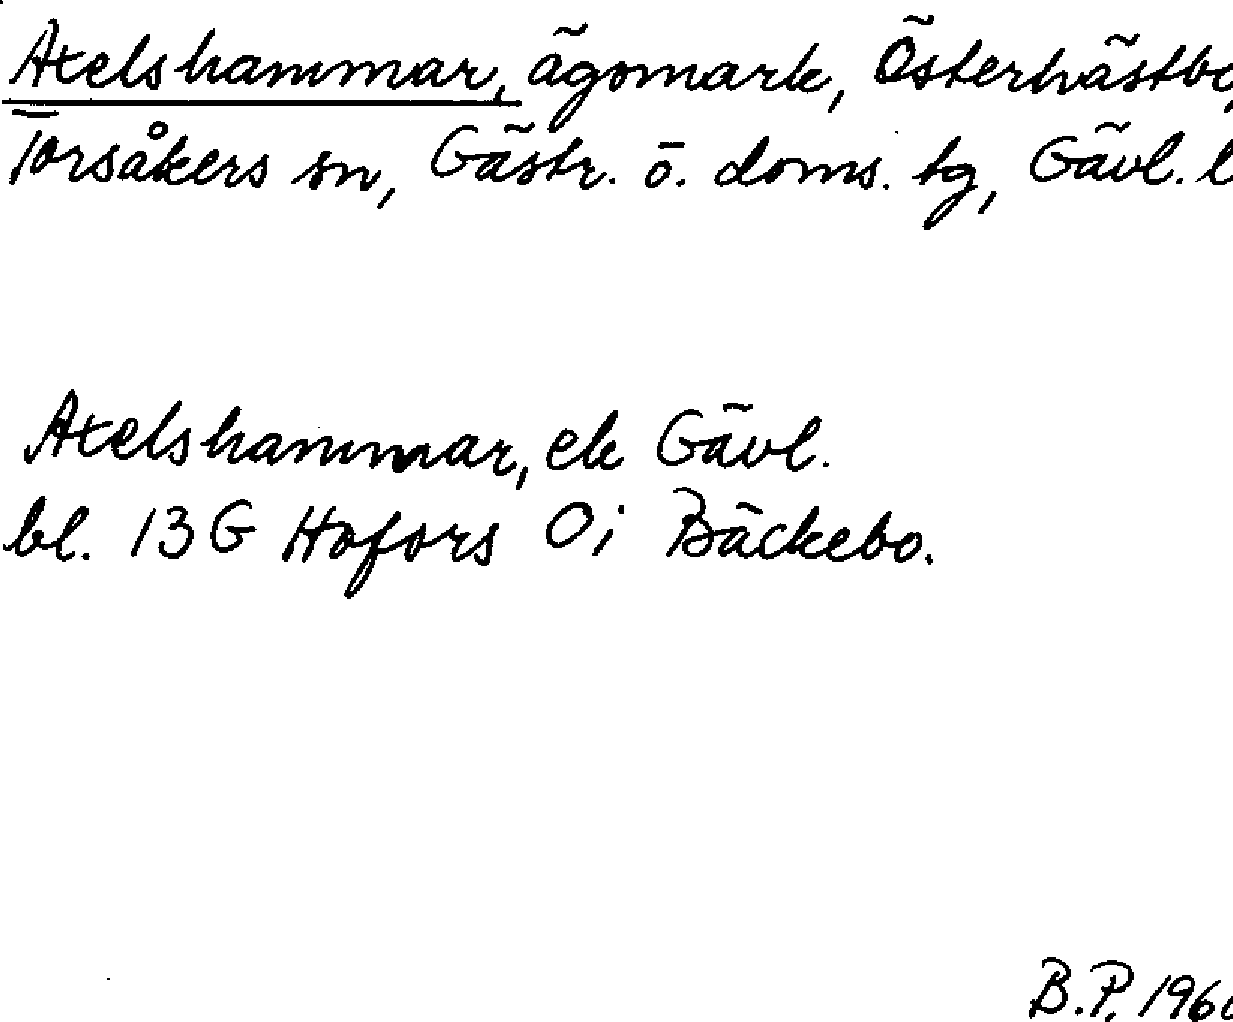 Axelshammar, ägomark, Österhästbo,
Torsåkers sn, Gästr. ö. doms. tg, Gävl. l
Axelshammar, ek Gävl.
bl. 13G Hofors Oi Bäckebo.
B.P. 196